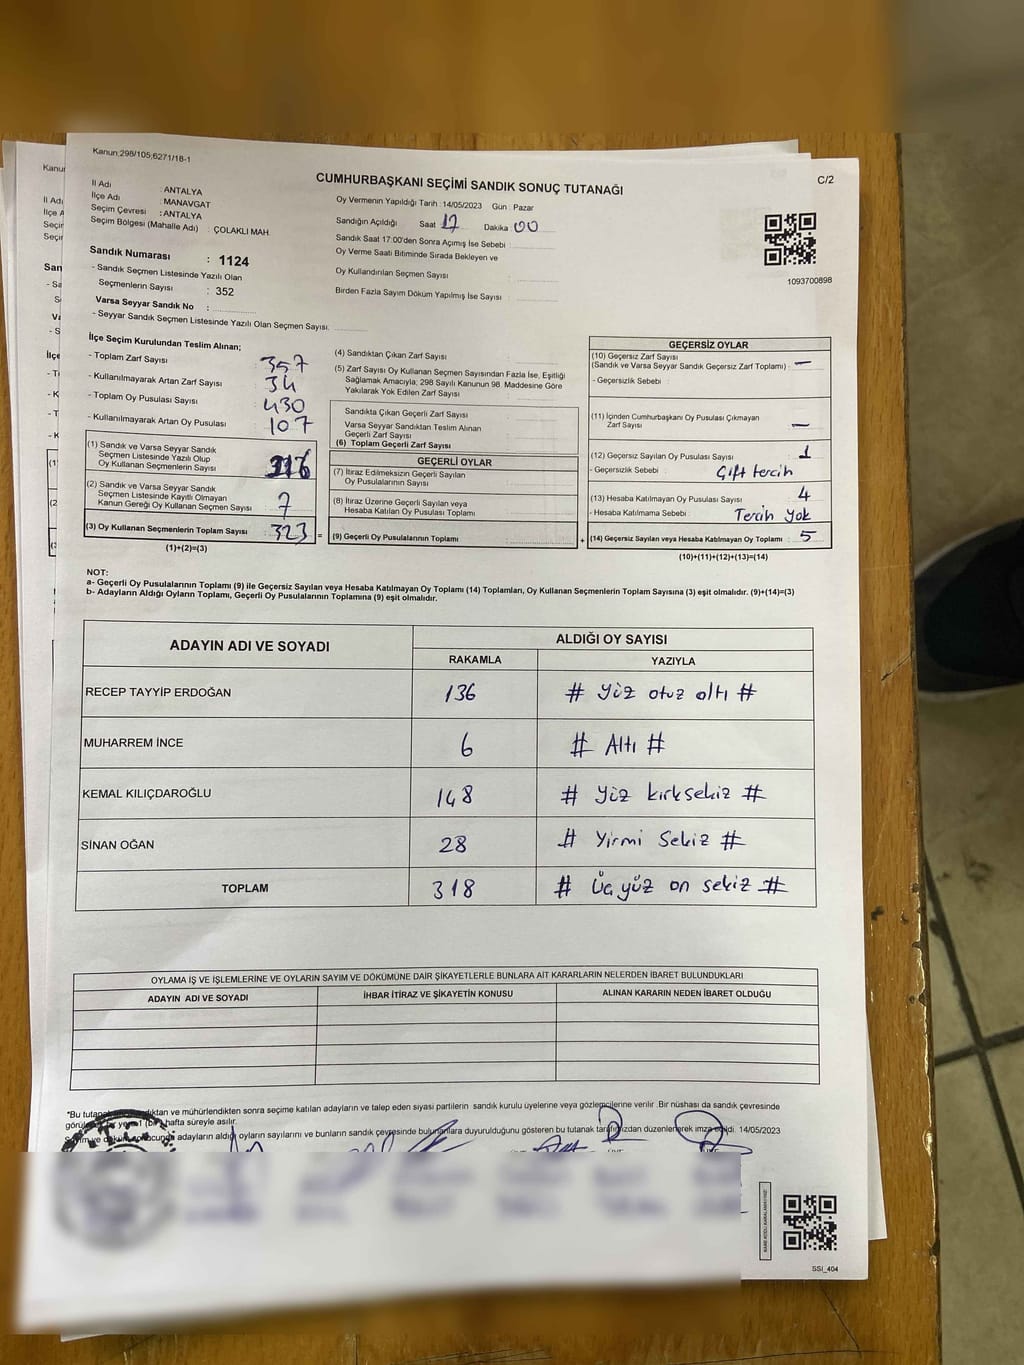 Kanun;298/105;6271/18-1
CUMHURBAŞKANI SEÇİMİ SANDIK SONUÇ TUTANAĞI
C/2
İl Adı : ANTALYA
İlçe Adı : MANAVGAT
Seçim Çevresi : ANTALYA
Seçim Bölgesi (Mahalle Adı) : ÇOLAKLI MAH.
Oy Vermenin Yapıldığı Tarih : 14/05/2023 Gün : Pazar
Sandığın Açıldığı Saat 17 Dakika 00
Sandık Saat 17:00'den Sonra Açımış İse Sebebi :
Oy Verme Saati Bitiminde Sırada Bekleyen ve
Oy Kullandırılan Seçmen Sayısı :
Birden Fazla Sayım Döküm Yapılmış İse Sayısı :
1093700898
Sandık Numarası : 1124
- Sandık Seçmen Listesinde Yazılı Olan
Seçmenlerin Sayısı : 352
Varsa Seyyar Sandık No :
- Seyyar Sandık Seçmen Listesinde Yazılı Olan Seçmen Sayısı:
İlçe Seçim Kurulundan Teslim Alınan;
- Toplam Zarf Sayısı : 357
- Kullanılmayarak Artan Zarf Sayısı : 34
- Toplam Oy Pusulası Sayısı : 430
- Kullanılmayarak Artan Oy Pusulası : 107
(1) Sandık ve Varsa Seyyar Sandık
Seçmen Listesinde Yazılı Olup
Oy Kullanan Seçmenlerin Sayısı : 316
(2) Sandık ve Varsa Seyyar Sandık
Seçmen Listesinde Kayıtlı Olmayan
Kanun Gereği Oy Kullanan Seçmen Sayısı : 7
(3) Oy Kullanan Seçmenlerin Toplam Sayısı : 323
(1)+(2)=(3)
(4) Sandıktan Çıkan Zarf Sayısı :
(5) Zarf Sayısı Oy Kullanan Seçmen Sayısından Fazla İse, Eşitliği
Sağlamak Amacıyla; 298 Sayılı Kanunun 98. Maddesine Göre
Yakılarak Yok Edilen Zarf Sayısı :
Sandıkta Çıkan Geçerli Zarf Sayısı :
Varsa Seyyar Sandıktan Teslim Alınan
Geçerli Zarf Sayısı :
(6) Toplam Geçerli Zarf Sayısı :
GEÇERLİ OYLAR
(7) İtiraz Edilmeksizin Geçerli Sayılan
Oy Pusulalarının Sayısı :
(8) İtiraz Üzerine Geçerli Sayılan veya
Hesaba Katılan Oy Pusulası Toplamı :
= (9) Geçerli Oy Pusulalarının Toplamı : +
GEÇERSİZ OYLAR
(10) Geçersiz Zarf Sayısı
(Sandık ve Varsa Seyyar Sandık Geçersiz Zarf Toplamı) : —
- Geçersizlik Sebebi :
(11) İçinden Cumhurbaşkanı Oy Pusulası Çıkmayan
Zarf Sayısı : —
(12) Geçersiz Sayılan Oy Pusulası Sayısı : 1
- Geçersizlik Sebebi : Çift tercih
(13) Hesaba Katılmayan Oy Pusulası Sayısı : 4
- Hesaba Katılmama Sebebi : Tercih yok
(14) Geçersiz Sayılan veya Hesaba Katılmayan Oy Toplamı : 5
(10)+(11)+(12)+(13)=(14)
NOT:
a- Geçerli Oy Pusulalarının Toplamı (9) ile Geçersiz Sayılan veya Hesaba Katılmayan Oy Toplamı (14) Toplamları, Oy Kullanan Seçmenlerin Toplam Sayısına (3) eşit olmalıdır. (9)+(14)=(3)
b- Adayların Aldığı Oyların Toplamı, Geçerli Oy Pusulalarının Toplamına (9) eşit olmalıdır.
ADAYIN ADI VE SOYADI
ALDIĞI OY SAYISI
RAKAMLA YAZIYLA
RECEP TAYYİP ERDOĞAN 136 # Yüz otuz altı #
MUHARREM İNCE 6 # Altı #
KEMAL KILIÇDAROĞLU 148 # Yüz kırksekiz #
SİNAN OĞAN 28 # Yirmi Sekiz #
TOPLAM 318 # Üç yüz on sekiz #
OYLAMA İŞ VE İŞLEMLERİNE VE OYLARIN SAYIM VE DÖKÜMÜNE DAİR ŞİKAYETLERLE BUNLARA AİT KARARLARIN NELERDEN İBARET BULUNDUKLARI
ADAYIN ADI VE SOYADI İHBAR İTİRAZ VE ŞİKAYETİN KONUSU ALINAN KARARIN NEDEN İBARET OLDUĞU
*Bu tutanak ve mühürlendikten sonra seçime katılan adayların ve talep eden siyasi partilerin sandık kurulu üyelerine veya gözlemcilerine verilir. Bir nüshası da sandık çevresinde
bir yere 1 (bir) hafta süreyle asılır.
Sayım ve döküm sonucunda adayların aldığı oyların sayılarını ve bunların sandık çevresinde bulunanlara duyurulduğunu gösteren bu tutanak tarafımızdan düzenlenerek imza edildi. 14/05/2023
SSİ_404